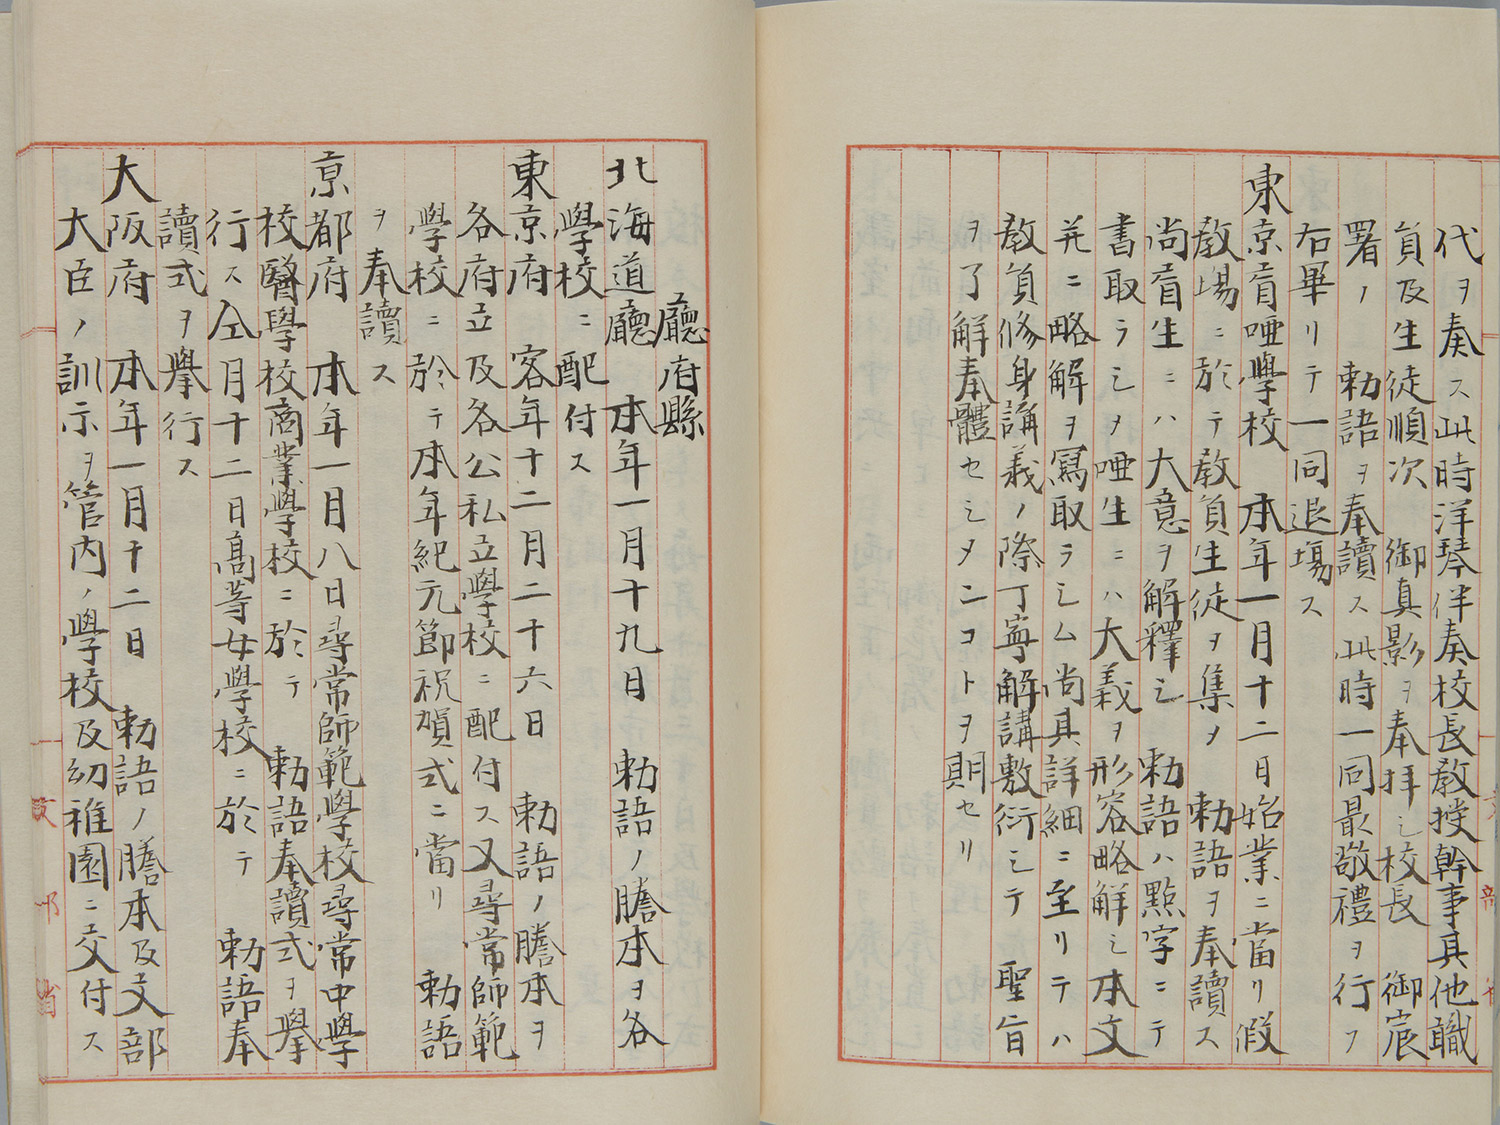 代ヲ奏ス此時洋琴伴奏校長教授幹事其他職
員及生徒順次　御真影ヲ奉拝シ校長　御宸
署ノ　勅語ヲ奉讀ス此時一同最敬禮ヲ行フ
右畢リテ一同退塲ス
東京盲唖學校　本年一月十二日始業ニ當リ假
教塲ニ於テ教員生徒ヲ集メ　勅語ヲ奉讀ス
尚盲生ニハ大意ヲ解釋シ　勅語ハ點字ニテ
書取ラシメ唖生ニハ大義ヲ形容略解シ本文
并ニ略解ヲ寫取ラシム尚其詳細ニ至リテハ
教員修身講義ノ際丁寧解講敷衍シテ　聖旨
ヲ了解奉體セシメンコトヲ期セリ
廳府縣
北海道廳　本年一月十九日　勅語ノ謄本ヲ各
學校ニ配付ス
東京府　客年十二月二十六日　勅語ノ謄本ヲ
各府立及各公私立學校ニ配付ス又尋常師範
學校ニ於テ本年紀元節祝賀式ニ當リ　勅語
ヲ奉讀ス
京都府　本年一月八日尋常師範學校尋常中學
校醫學校商業學校ニ於テ　勅語奉讀式ヲ擧
行ス仝月十二日髙等女學校ニ於テ　勅語奉
讀式ヲ擧行ス
大阪府　本年一月十二日　勅語ノ謄本及文部
大臣ノ訓示ヲ管内ノ學校及幼稚園ニ交付ス
文部省